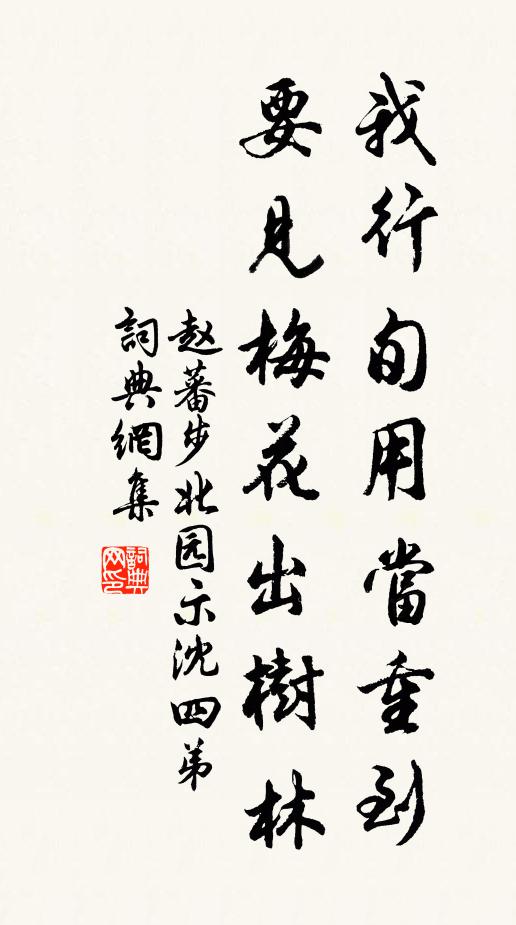 我行旬用當重到
要見梅花出樹林
赵蕃步北园示沈四弟
詞典網集
詞典
网印